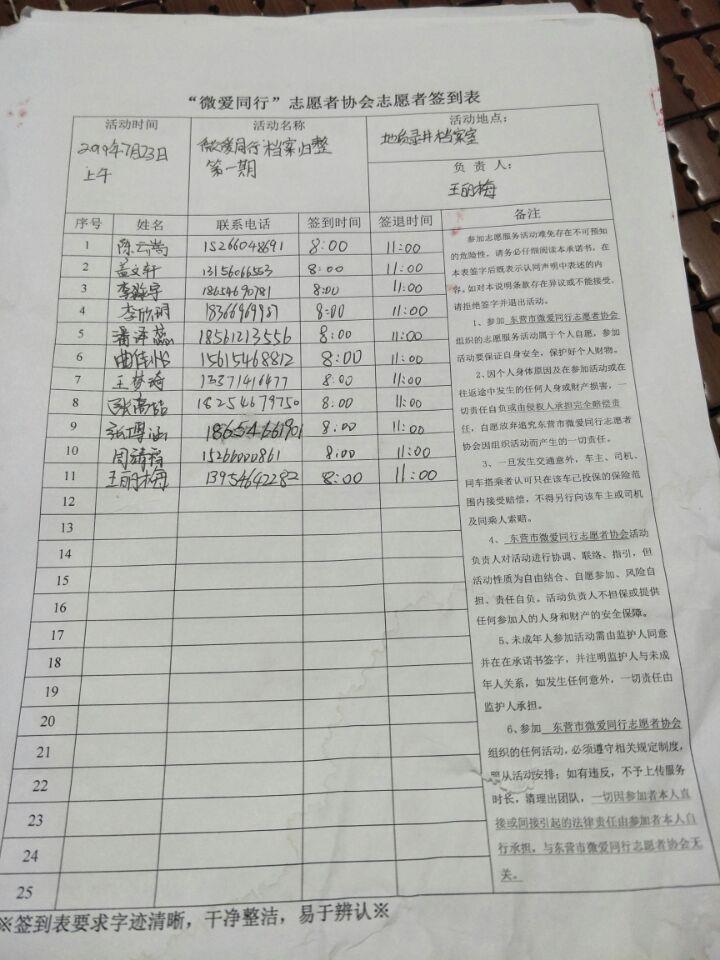 “微爱同行”志愿者协会志愿者签到表
活动时间
7月23日
上午
活动名称
微爱同行档案归整
第一期
活动地点：
地质录井档案室
负责人：
王丽梅
序号 姓名 联系电话 签到时间 签退时间 备注
1 陈云嵩 15266048691 8:00 11:00
2 盖文轩 13156066553 8:00 11:00
3 18654690781 8:00 11:00
4 李欣玥 18366969987 8:00 11:00
5 潘泽蕊 18561213556 8:00 11:00
6 15615468812 8:00 11:00
7 王梦琦 13371416477 8:00 11:00
8 18254679750 8:00 11:00
9 张博涵 18654661901 8:00 11:00
10 周靖程 15266000861 8:00 11:00
11 王丽梅 13954642282 8:00 11:00
12
13
14
15
16
17
18
19
20
21
22
23
24
25
参加志愿服务活动难免存在不可预知
的危险性，请务必仔细阅读本承诺书，在
本表签字后既表示认同声明中表述的内
容。如对本说明条款存在异议或不能接受，
请拒绝签字并退出活动。
1、参加 东营市微爱同行志愿者协会
组织的志愿服务活动属于个人自愿，参加
活动要保证自身安全，保护好个人财物。
2、因个人身体原因及在参加活动或在
往返途中发生的任何人身或财产损害，一
切责任自负或由侵权人承担完全赔偿责
任，自愿放弃追究东营市微爱同行志愿者
协会因组织活动而产生的一切责任。
3、一旦发生交通意外，车主、司机、
同车搭乘者认可只在该车已投保的保险范
围内接受赔偿，不得另行向该车主或司机
及同乘人索赔。
4、 东营市微爱同行志愿者协会活动
负责人对活动进行协调、联络、指引，但
活动性质为自由结合、自愿参加、风险自
担、责任自负。活动负责人不担保或提供
任何参加人的人身和财产的安全保障。
5、未成年人参加活动需由监护人同意
并在在承诺书签字，并注明监护人与未成
年人关系，如发生任何意外，一切责任由
监护人承担。
6、参加 东营市微爱同行志愿者协会
组织的任何活动，必须遵守相关规定制度，
服从活动安排；如有违反，不予上传服务
时长，请理出团队，一切因参加者本人直
接或间接引起的法律责任由参加者本人自
行承担，与东营市微爱同行志愿者协会无
关。
※签到表要求字迹清晰，干净整洁，易于辨认※